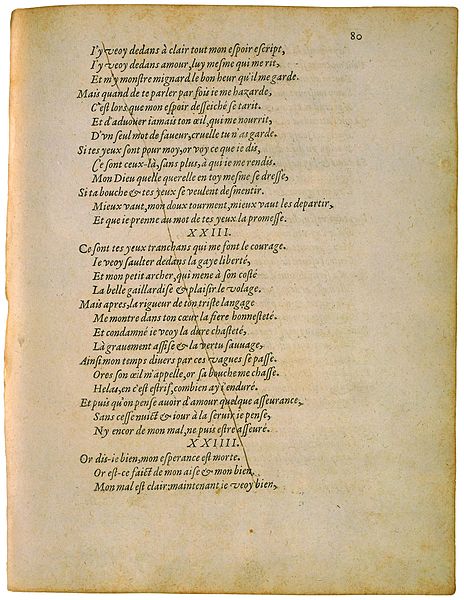 80
I'y veoy dedans à clair tout mon espoir escript,
I'y veoy dedans amour, luy mesme qui me rit,
Et m'y monstre mignard, le bon heur qu'il me garde.
Mais quand de te parler par fois ie me hazarde,
C'est lors que mon espoir desseiché se tarit.
Et d'aduouer iamais ton œil, qui me nourrit,
D'vn seul mot de faueur, cruelle tu n'as garde.
Si tes yeux sont pour moy, or voy ce que ie dis,
Ce sont ceux-là, sans plus, à qui ie me rendis.
Mon Dieu quelle querelle en toy mesme se dresse,
Si ta bouche & tes yeux se veulent desmentir.
Mieux vaut, mon doux tourment, mieux vaut les departir,
Et que ie prenne au mot de tes yeux la promesse.
XXIII.
Ce sont tes yeux tranchans qui me font le courage.
Ie veoy saulter dedans la gaye liberté,
Et mon petit archer, qui mene à son costé
La belle gaillardise & plaisir le volage.
Mais apres, la rigueur de ton triste langage
Me montre dans ton cœur la fiere honnesteté.
Et condamné ie veoy la dure chasteté,
Là grauement assise & la vertu sauuage,
Ainsi mon temps diuers par ces vagues se passe.
Ores son œil m'appelle, or sa bouche me chasse.
Helas, en c'est estrif, combien ay i'enduré.
Et puis qu'on pense auoir d'amour quelque asseurance,
Sans cesse nuict & iour à la seruir ie pense,
Ny encor de mon mal, ne puis estre asseuré.
XXIIII.
Or dis-ie bien, mon esperance est morte.
Or est-ce faict de mon aise & mon bien.
Mon mal est clair: maintenant ie veoy bien,